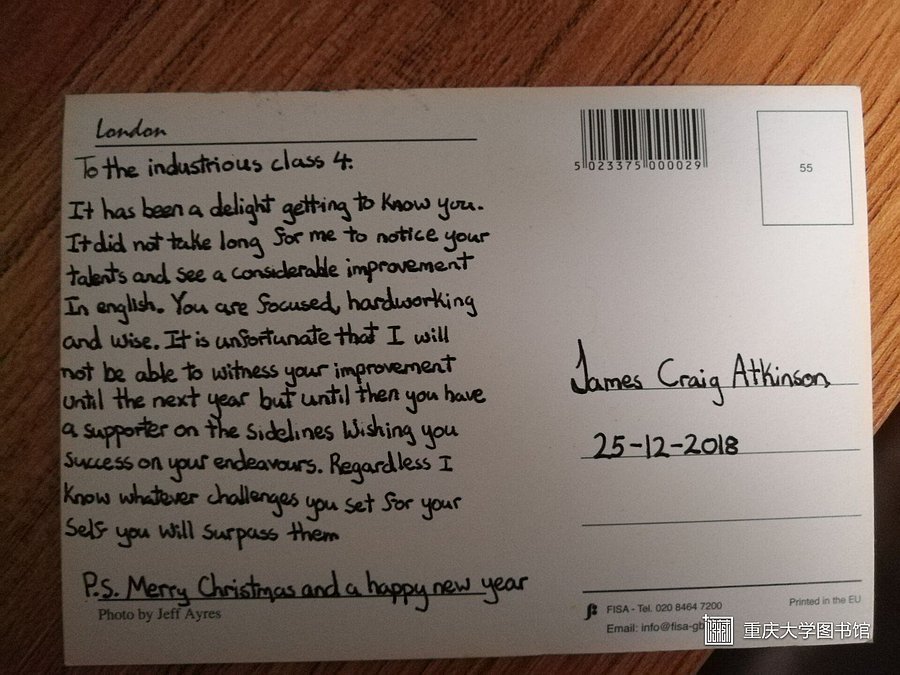 London
To the industrious class 4.
It has been a delight getting to know you.
It did not take long for me to notice your
talents and see a considerable improvement
In english. You are focused, hardworking
and wise. It is unfortunate that I will
not be able to witness your improvement
until the next year but until then you have
a supporter on the sidelines wishing you
success on your endeavours. Regardless I
know whatever challenges you set for your
self you will surpass them
P.S. Merry Christmas and a happy new year
Photo by Jeff Ayres
5 023375 000029
55
James Craig Atkinson
25-12-2018
FISA - Tel. 020 8464 7200
Email: info@fisa-gb
Printed in the EU
重庆大学图书馆